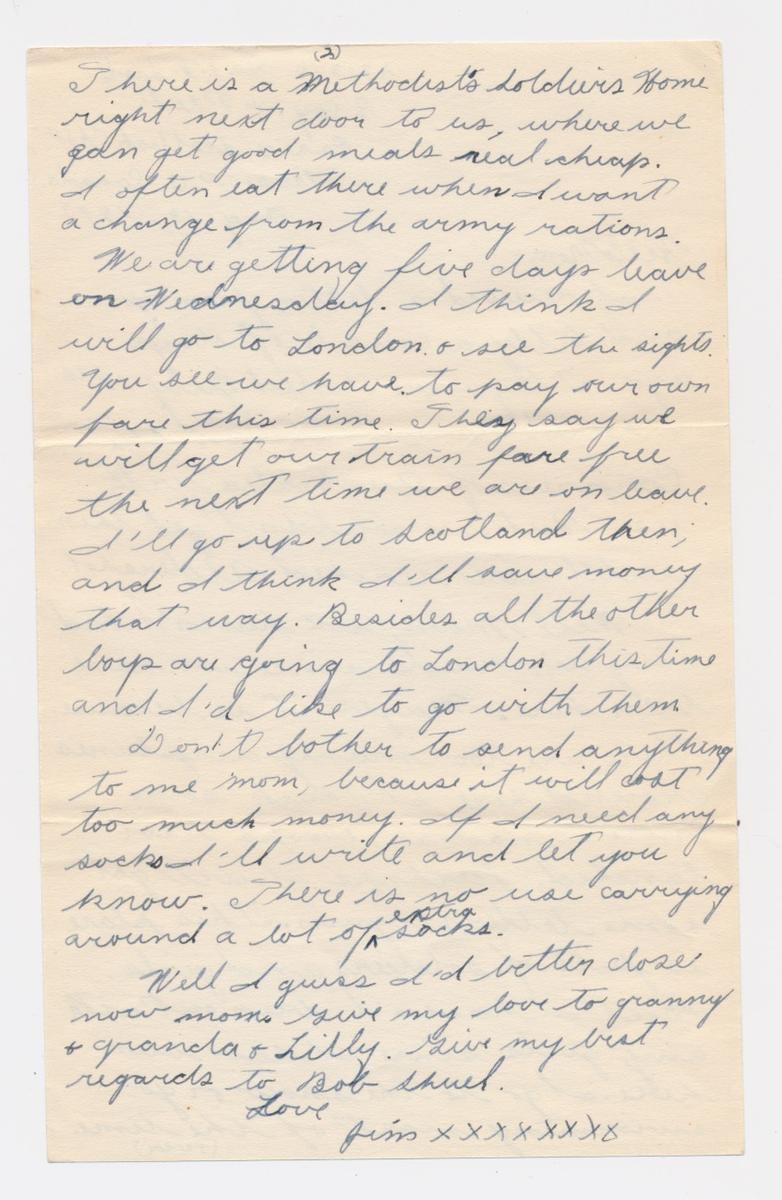 (2)
There is a Methodist's Soldiers Home
right next door to us, where we
can get good meals real cheap.
I often eat there when I want
a change from the army rations.
We are getting five days leave
on Wednesday. I think I
will go to London & see the sights.
You see we have to pay our own
fare this time. They say we
will get our train fare free
the next time we are on leave.
I'll go up to Scotland then,
and I think I'll save money
that way. Besides all the other
boys are going to London this time
and I'd like to go with them
Don't bother to send anything
to me mom, because it will cost
too much money. If I need any
socks I'll write and let you
know. There is no use carrying
around a lot of extra socks.
Well I guess I'd better close
now mom. Give my love to granny
& granda & Lilly. Give my best
regards to Bob Shuel.
Love
Jim x x x x x x x x